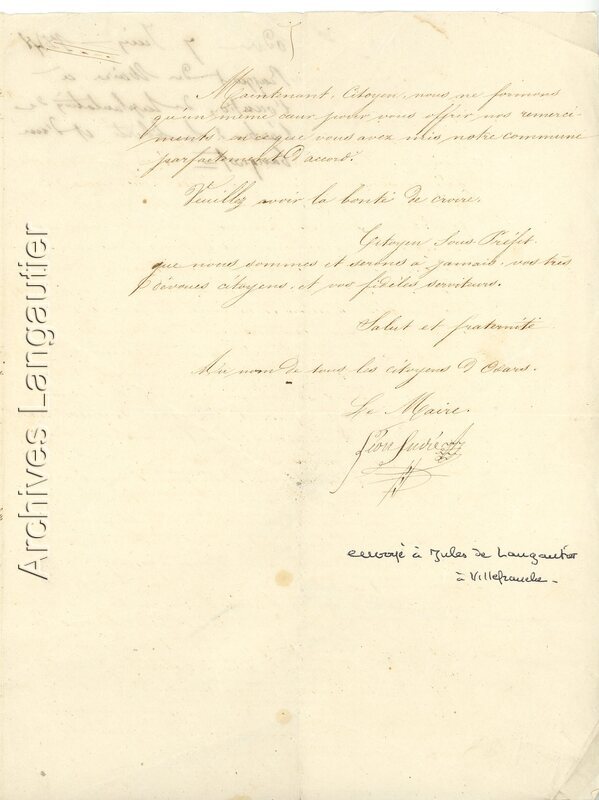 Maintenant, Citoyen, nous ne formons
qu'un même cœur pour vous offrir nos remerci-
ments, en ce que vous avez mis notre commune
parfaitement d'accord.
Veuillez avoir la bonté de croire,
Citoyen Sous Préfet,
que nous sommes et serons à jamais, vos très
dévoués citoyens, et vos fidèles serviteurs.
Salut et fraternité
Au nom de tous les citoyens d'Odars.
Le Maire,
Léon
envoyé à Jules de Langautier
à Villefranche -
Archives Langautier